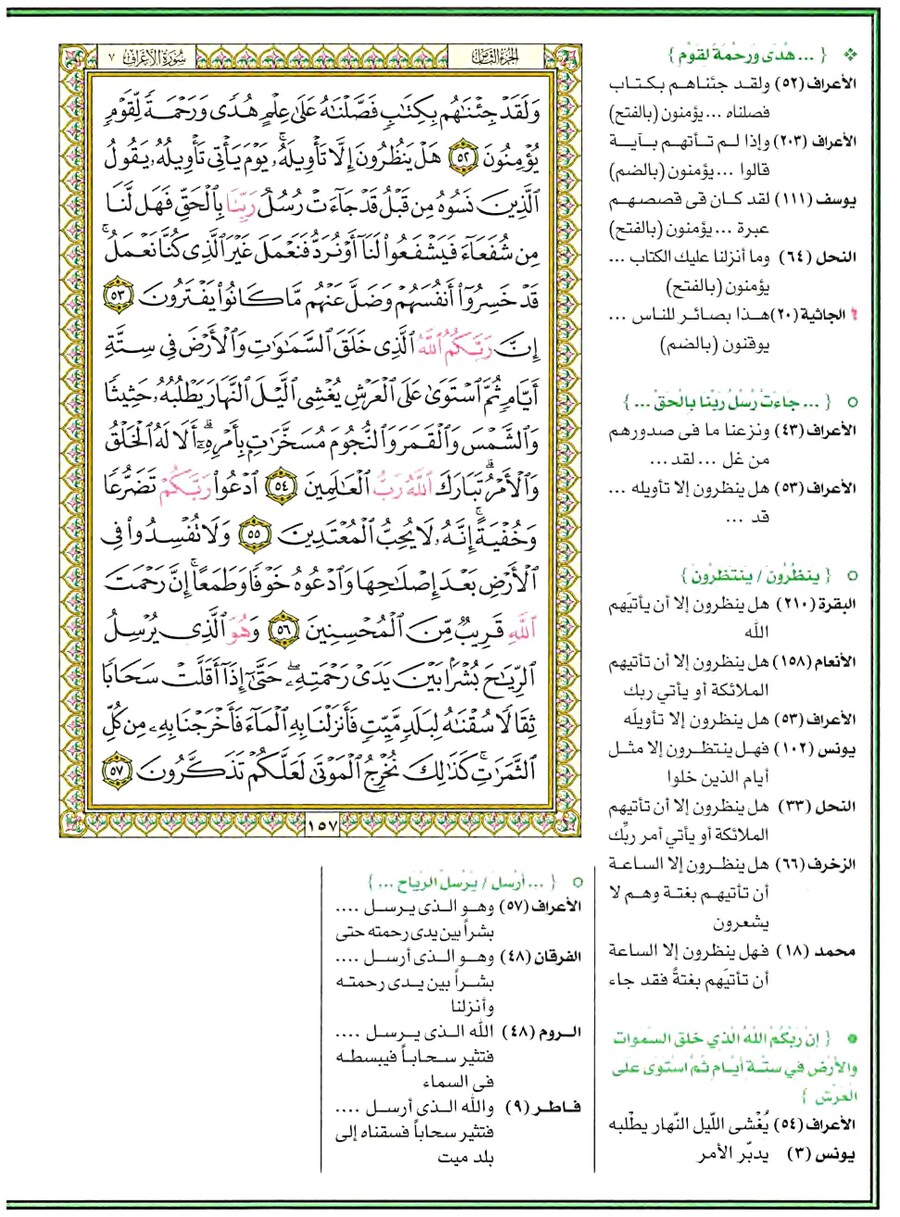 الجزء الثامن
سورة الأعراف ٧
وَلَقَدْ جِئْنَٰهُم بِكِتَٰبٍ فَصَّلْنَٰهُ عَلَىٰ عِلْمٍ هُدًى وَرَحْمَةً لِّقَوْمٍ
يُؤْمِنُونَ ٥٢ هَلْ يَنظُرُونَ إِلَّا تَأْوِيلَهُۥ ۚ يَوْمَ يَأْتِى تَأْوِيلُهُۥ يَقُولُ
ٱلَّذِينَ نَسُوهُ مِن قَبْلُ قَدْ جَآءَتْ رُسُلُ رَبِّنَا بِٱلْحَقِّ فَهَل لَّنَا
مِن شُفَعَآءَ فَيَشْفَعُوا۟ لَنَآ أَوْ نُرَدُّ فَنَعْمَلَ غَيْرَ ٱلَّذِى كُنَّا نَعْمَلُ ۚ
قَدْ خَسِرُوٓا۟ أَنفُسَهُمْ وَضَلَّ عَنْهُم مَّا كَانُوا۟ يَفْتَرُونَ ٥٣
إِنَّ رَبَّكُمُ ٱللَّهُ ٱلَّذِى خَلَقَ ٱلسَّمَٰوَٰتِ وَٱلْأَرْضَ فِى سِتَّةِ
أَيَّامٍ ثُمَّ ٱسْتَوَىٰ عَلَى ٱلْعَرْشِ يُغْشِى ٱلَّيْلَ ٱلنَّهَارَ يَطْلُبُهُۥ حَثِيثًا
وَٱلشَّمْسَ وَٱلْقَمَرَ وَٱلنُّجُومَ مُسَخَّرَٰتٍۭ بِأَمْرِهِۦٓ ۗ أَلَا لَهُ ٱلْخَلْقُ
وَٱلْأَمْرُ ۗ تَبَارَكَ ٱللَّهُ رَبُّ ٱلْعَٰلَمِينَ ٥٤ ٱدْعُوا۟ رَبَّكُمْ تَضَرُّعًا
وَخُفْيَةً ۚ إِنَّهُۥ لَا يُحِبُّ ٱلْمُعْتَدِينَ ٥٥ وَلَا تُفْسِدُوا۟ فِى
ٱلْأَرْضِ بَعْدَ إِصْلَٰحِهَا وَٱدْعُوهُ خَوْفًا وَطَمَعًا ۚ إِنَّ رَحْمَتَ
ٱللَّهِ قَرِيبٌ مِّنَ ٱلْمُحْسِنِينَ ٥٦ وَهُوَ ٱلَّذِى يُرْسِلُ
ٱلرِّيَٰحَ بُشْرًۢا بَيْنَ يَدَىْ رَحْمَتِهِۦ ۖ حَتَّىٰٓ إِذَآ أَقَلَّتْ سَحَابًا
ثِقَالًا سُقْنَٰهُ لِبَلَدٍ مَّيِّتٍ فَأَنزَلْنَا بِهِ ٱلْمَآءَ فَأَخْرَجْنَا بِهِۦ مِن كُلِّ
ٱلثَّمَرَٰتِ ۚ كَذَٰلِكَ نُخْرِجُ ٱلْمَوْتَىٰ لَعَلَّكُمْ تَذَكَّرُونَ ٥٧
١٥٧
{ ... هُدًى وَرَحْمَةً لِقَوْمٍ }
الأعراف (٥٢) ولقد جئناهم بكتاب
فصلناه ... يؤمنون (بالفتح)
الأعراف (٢٠٣) وإذا لم تأتهم بآية
قالوا ... يؤمنون (بالضم)
يوسف (١١١) لقد كان فى قصصهم
عبرة ... يؤمنون (بالفتح)
النحل (٦٤) وما أنزلنا عليك الكتاب ...
يؤمنون (بالفتح)
الجاثية (٢٠) هذا بصائر للناس ...
يوقنون (بالضم)
{ ... جَاءَتْ رُسُلُ رَبِّنَا بِالْحَقِّ ... }
الأعراف (٤٣) ونزعنا ما فى صدورهم
من غل ... لقد ...
الأعراف (٥٣) هل ينظرون إلا تأويله ...
قد ...
{ يَنظُرُونَ / يَنتَظِرُونَ }
البقرة (٢١٠) هل ينظرون إلا أن يأتيَهم
الله
الأنعام (١٥٨) هل ينظرون إلا أن تأتيهم
الملائكة أو يأتي ربك
الأعراف (٥٣) هل ينظرون إلا تأويلَه
يونس (١٠٢) فهل ينتظرون إلا مثل
أيام الذين خلوا
النحل (٣٣) هل ينظرون إلا أن تأتيهم
الملائكة أو يأتي أمر ربِّك
الزخرف (٦٦) هل ينظرون إلا الساعة
أن تأتيهم بغتة وهم لا
يشعرون
محمد (١٨) فهل ينظرون إلا الساعة
أن تأتيَهم بغتةً فقد جاء
{ إِنَّ رَبَّكُمُ اللَّهُ الَّذِي خَلَقَ السَّمَوَات
والأَرْضَ فِي سِتَّةِ أَيَّامٍ ثُمَّ اسْتَوَى عَلَى
الْعَرْشِ }
الأعراف (٥٤) يُغْشى اللّيل النّهار يطلْبه
يونس (٣) يدبّر الأمر
{ ... أَرْسَلَ / يُرْسِلُ الرِّيَاح ... }
الأعراف (٥٧) وهو الذى يرسل ....
بشراً بين يدى رحمته حتى
الفرقان (٤٨) وهو الذى أرسل ....
بشراً بين يدى رحمته
وأنزلنا
الروم (٤٨) الله الذى يرسل ....
فتثير سحاباً فيبسطه
فى السماء
فاطر (٩) والله الذى أرسل ....
فتثير سحاباً فسقناه إلى
بلد ميت